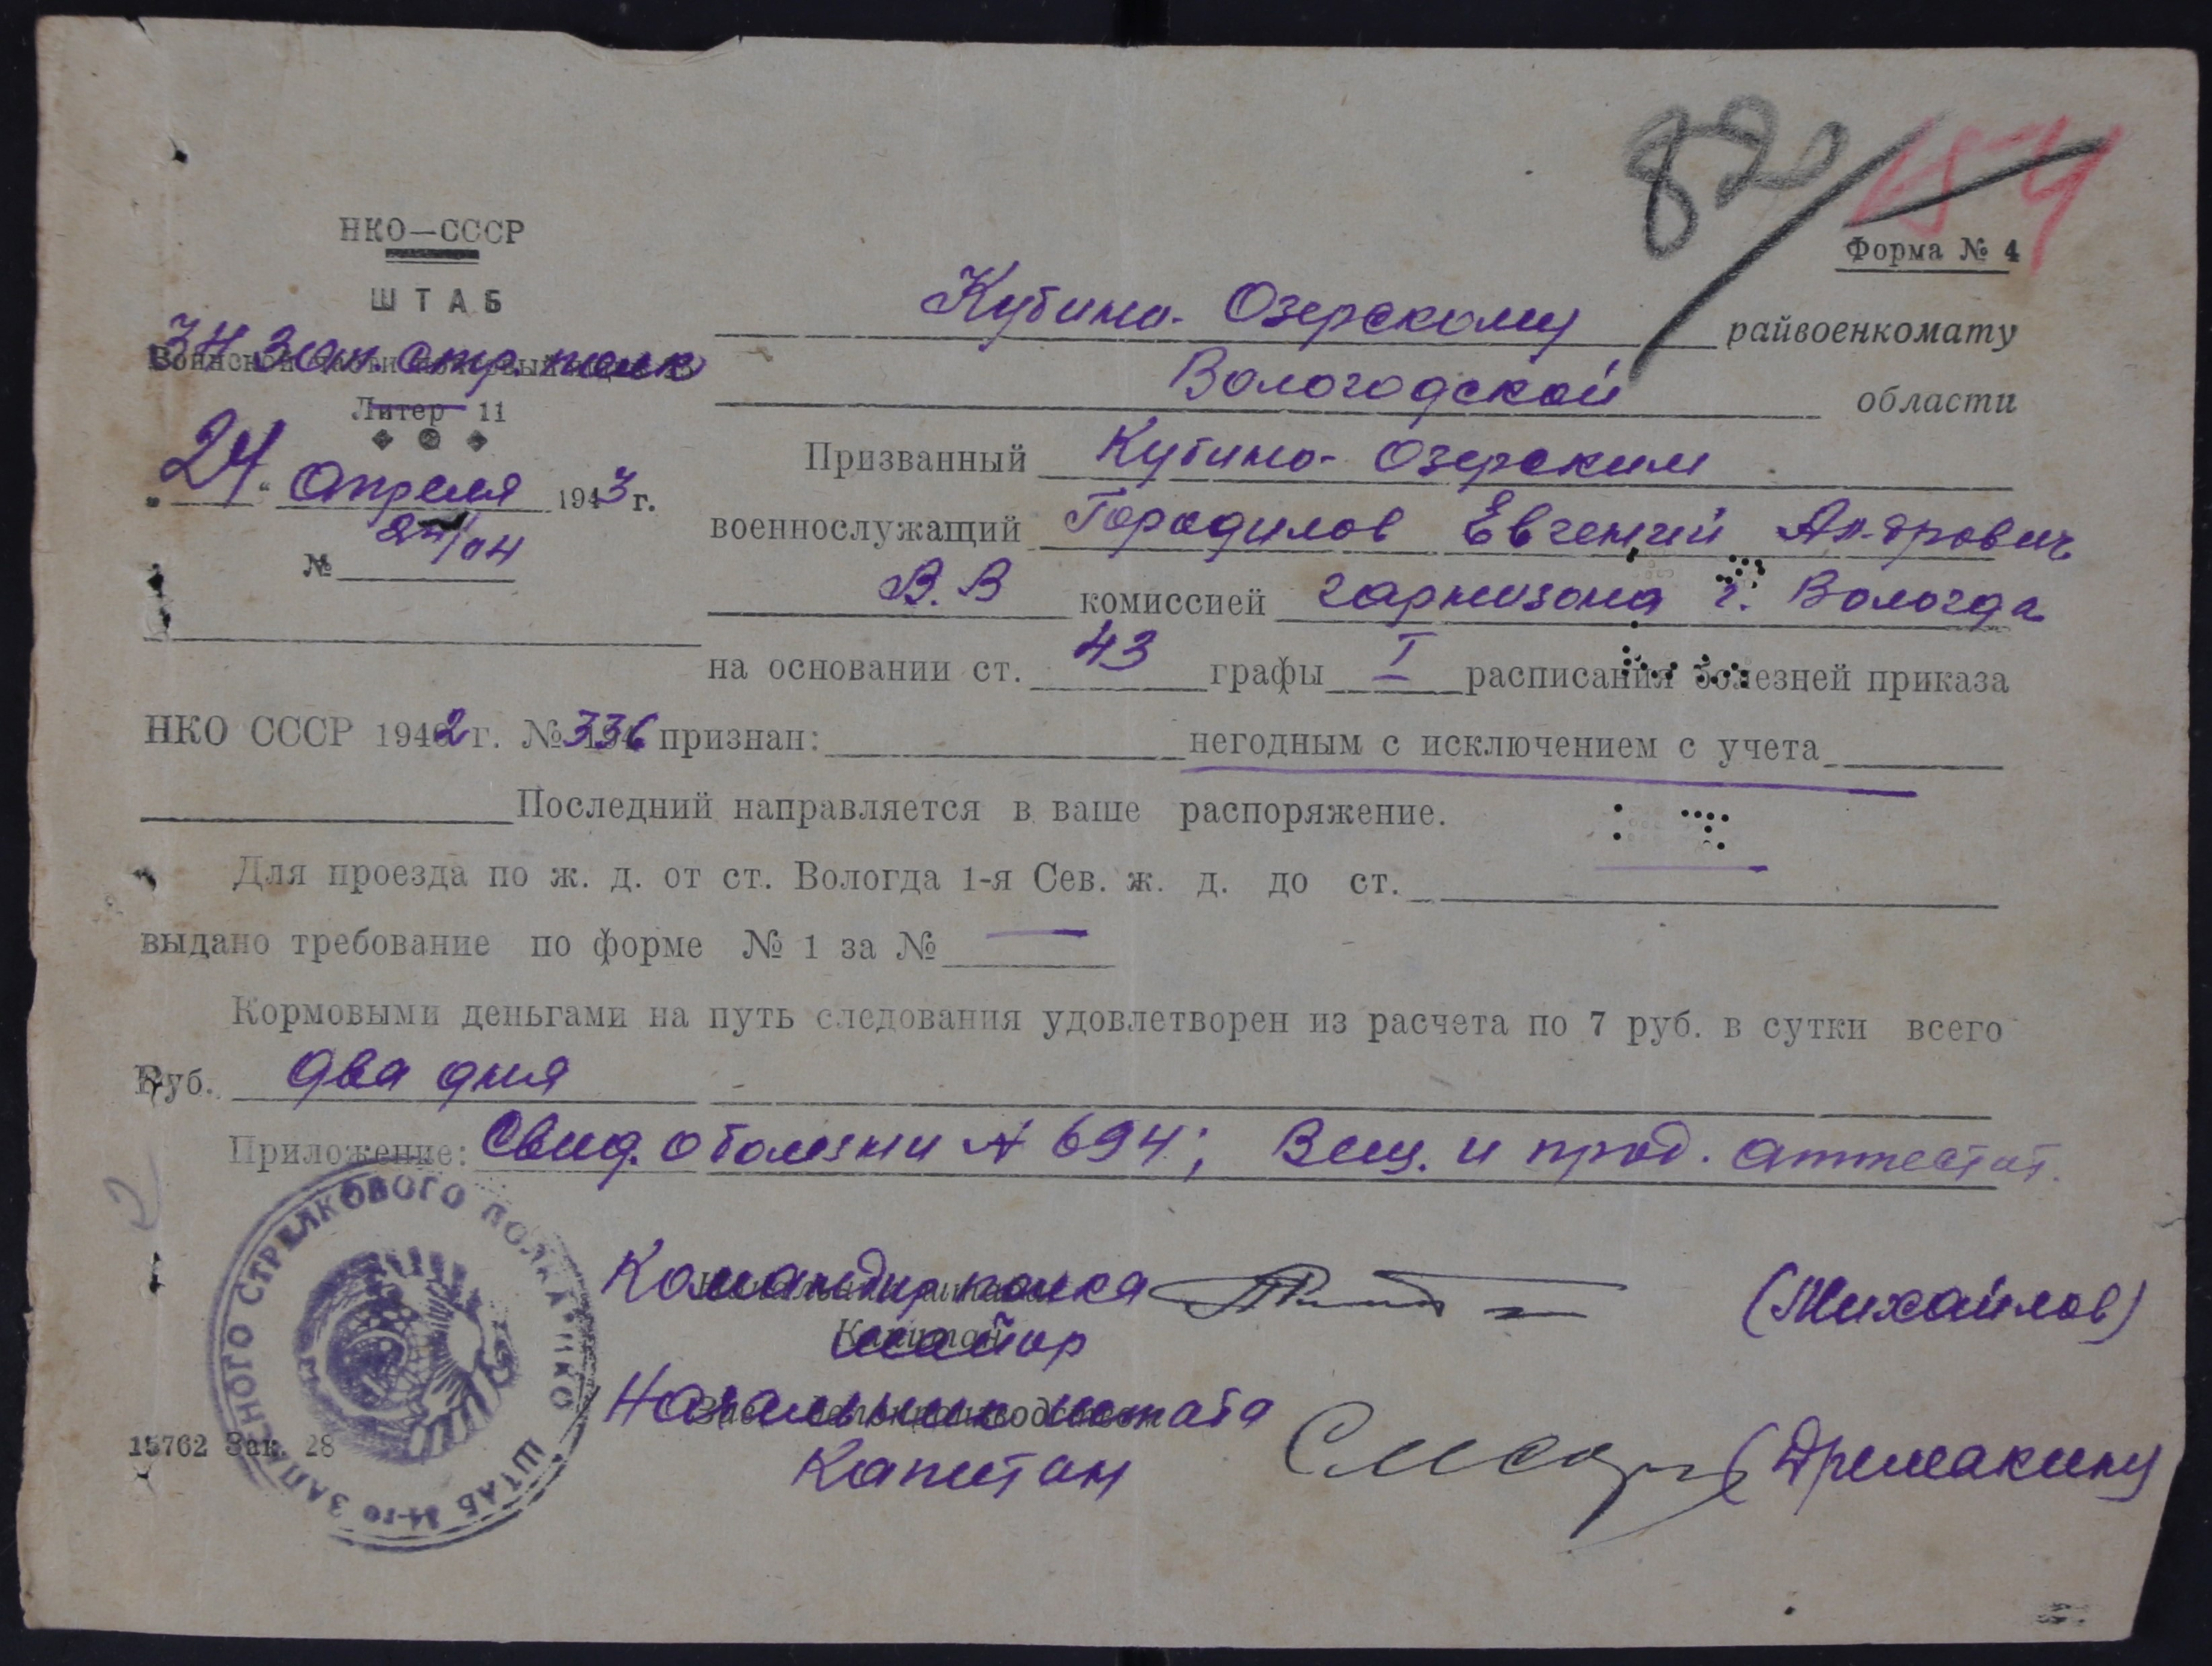 820
154
НКО—СССР
Форма № 4
ШТАБ
34 Зап. стр. полк
Литер 11
24 " Апреля 1943 г.
№ 24/04
Кубино-Озерскому райвоенкомату
Вологодской области
Призванный Кубино-Озерским
военнослужащий Городилов Евгений Ан-дрович
В.В комиссией гарнизона г. Вологда
на основании ст. 43 графы I расписания болезней приказа
НКО СССР 1942 г. № 336 признан: негодным с исключением с учета
Последний направляется в ваше распоряжение.
Для проезда по ж. д. от ст. Вологда 1-я Сев. ж. д. до ст. —
выдано требование по форме № 1 за № —
Кормовыми деньгами на путь следования удовлетворен из расчета по 7 руб. в сутки всего
Руб. два дня
Приложение: Свид. о болезни № 694; Вещ. и прод. аттестат.
Командир полка (Михайлов)
майор
Начальник штаба
Капитан (Дремакину
15762 Зак. 28
ШТАБ 34-го ЗАПАСНОГО СТРЕЛКОВОГО ПОЛКА НКО